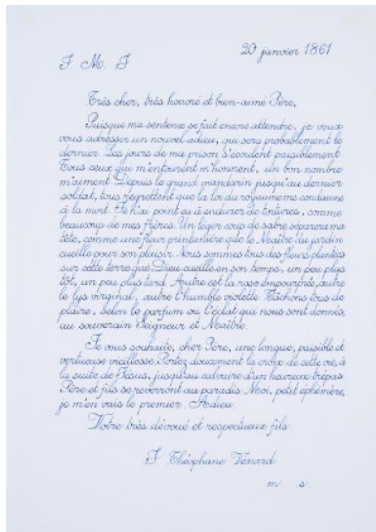 20 janvier 1861
J M. J
Très cher, très honoré et bien-aimé Père,
Puisque ma sentence se fait encore attendre, je veux
vous adresser un nouvel adieu, qui sera probablement le
dernier. Les jours de ma prison s'écoulent paisiblement
Tous ceux qui m'entourent m'honorent, un bon nombre
m'aiment Depuis le grand mandarin jusqu'au dernier
soldat, tous regrettent que la loi du royaume me condamne
à la mort. Je n'ai point eu à endurer de tortures, comme
beaucoup de mes frères. Un léger coup de sabre séparera ma
tête, comme une fleur printanière que le Maître du jardin
cueille pour son plaisir. Nous sommes tous des fleurs plantées
sur cette terre que Dieu cueille en son temps, un peu plus
tôt, un peu plus tard. Autre est la rose empourprée, autre
le lys virginal, autre l'humble violette. Tâchons tous de
plaire, selon le parfum ou l'éclat qui nous sont donnés,
au souverain Seigneur et Maître.
Je vous souhaite, cher Père, une longue, paisible et
vertueuse vieillesse. Portez doucement la croix de cette vie, à
la suite de Jésus, jusqu'au calvaire d'un heureux trépas.
Père et fils se reverront au paradis. Moi, petit éphémère,
je m'en vais le premier. Adieu.
Votre très dévoué et respectueux fils
J Théophane Vénard
m. s.